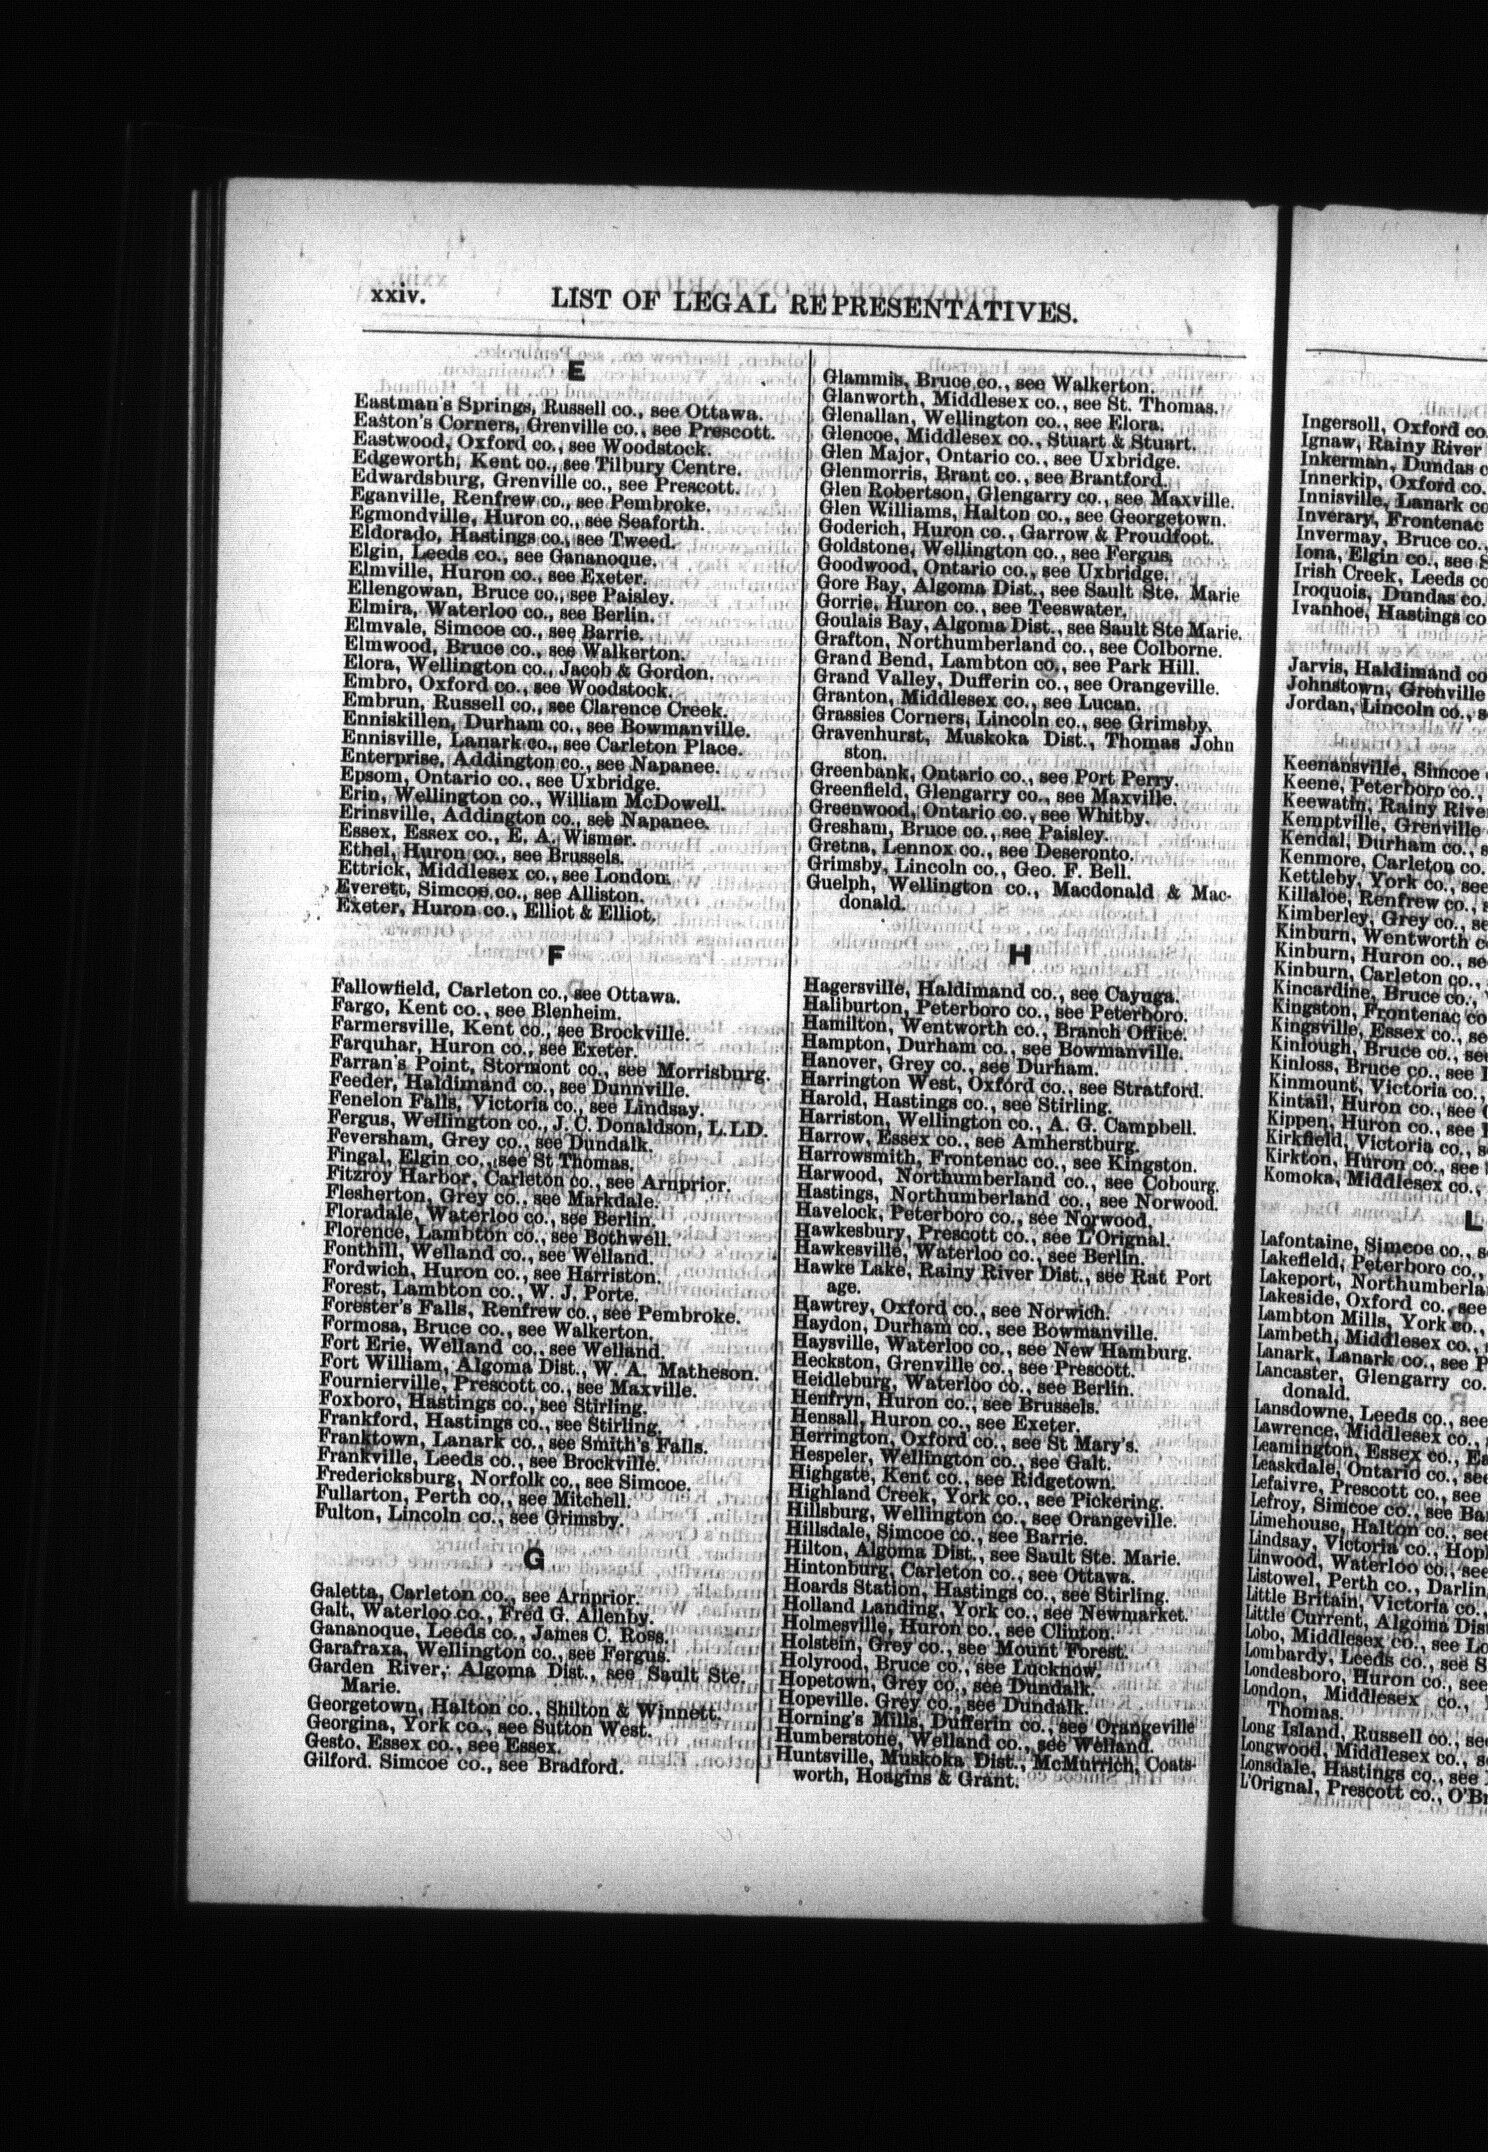 xxiv. LIST OF LEGAL REPRESENTATIVES.
E
Eastman's Springs, Russell co., see Ottawa.
Easton's Corners, Grenville co., see Prescott.
Eastwood, Oxford co., see Woodstock.
Edgeworth, Kent co., see Tilbury Centre.
Edwardsburg, Grenville co., see Prescott.
Eganville, Renfrew co., see Pembroke.
Egmondville, Huron co., see Seaforth.
Eldorado, Hastings co., see Tweed.
Elgin, Leeds co., see Gananoque.
Elmville, Huron co., see Exeter.
Ellengowan, Bruce co., see Paisley.
Elmira, Waterloo co., see Berlin.
Elmvale, Simcoe co., see Barrie.
Elmwood, Bruce co., see Walkerton.
Elora, Wellington co., Jacob & Gordon.
Embro, Oxford co., see Woodstock.
Embrun, Russell co., see Clarence Creek.
Enniskillen, Durham co., see Bowmanville.
Ennisville, Lanark co., see Carleton Place.
Enterprise, Addington co., see Napanee.
Epsom, Ontario co., see Uxbridge.
Erin, Wellington co., William McDowell.
Erinsville, Addington co., see Napanee.
Essex, Essex co., E. A. Wismer.
Ethel, Huron co., see Brussels.
Ettrick, Middlesex co., see London.
Everett, Simcoe co., see Alliston.
Exeter, Huron co., Elliot & Elliot.
F
Fallowfield, Carleton co., see Ottawa.
Fargo, Kent co., see Blenheim.
Farmersville, Kent co., see Brockville.
Farquhar, Huron co., see Exeter.
Farran's Point, Stormont co., see Morrisburg.
Feeder, Haldimand co., see Dunnville.
Fenelon Falls, Victoria co., see Lindsay.
Fergus, Wellington co., J. C. Donaldson, L.LD.
Feversham, Grey co., see Dundalk.
Fingal, Elgin co., see St Thomas.
Fitzroy Harbor, Carleton co., see Arnprior.
Flesherton, Grey co., see Markdale.
Floradale, Waterloo co., see Berlin.
Florence, Lambton co., see Bothwell.
Fonthill, Welland co., see Welland.
Fordwich, Huron co., see Harriston.
Forest, Lambton co., W. J. Porte.
Forester's Falls, Renfrew co., see Pembroke.
Formosa, Bruce co., see Walkerton.
Fort Erie, Welland co., see Welland.
Fort William, Algoma Dist., W. A. Matheson.
Fournierville, Prescott co., see Maxville.
Foxboro, Hastings co., see Stirling.
Frankford, Hastings co., see Stirling.
Franktown, Lanark co., see Smith's Falls.
Frankville, Leeds co., see Brockville.
Fredericksburg, Norfolk co., see Simcoe.
Fullarton, Perth co., see Mitchell.
Fulton, Lincoln co., see Grimsby.
G
Galetta, Carleton co., see Arnprior.
Galt, Waterloo co., Fred G. Allenby.
Gananoque, Leeds co., James C. Ross.
Garafraxa, Wellington co., see Fergus.
Garden River, Algoma Dist., see Sault Ste.
Marie.
Georgetown, Halton co., Shilton & Winnett.
Georgina, York co., see Sutton West.
Gesto. Essex co., see Essex.
Gilford. Simcoe co., see Bradford.
Glammis, Bruce co., see Walkerton.
Glanworth, Middlesex co., see St. Thomas.
Glenallan, Wellington co., see Elora.
Glencoe, Middlesex co., Stuart & Stuart.
Glen Major, Ontario co., see Uxbridge.
Glenmorris, Brant co., see Brantford.
Glen Robertson, Glengarry co., see Maxville.
Glen Williams, Halton co., see Georgetown.
Goderich, Huron co., Garrow & Proudfoot.
Goldstone, Wellington co., see Fergus.
Goodwood, Ontario co., see Uxbridge.
Gore Bay, Algoma Dist., see Sault Ste. Marie
Gorrie, Huron co., see Teeswater.
Goulais Bay, Algoma Dist., see Sault Ste Marie.
Grafton, Northumberland co., see Colborne.
Grand Bend, Lambton co., see Park Hill.
Grand Valley, Dufferin co., see Orangeville.
Granton, Middlesex co., see Lucan.
Grassies Corners, Lincoln co., see Grimsby.
Gravenhurst, Muskoka Dist., Thomas John
ston.
Greenbank, Ontario co., see Port Perry.
Greenfield, Glengarry co., see Maxville.
Greenwood, Ontario co., see Whitby.
Gresham, Bruce co., see Paisley.
Gretna, Lennox co., see Deseronto.
Grimsby, Lincoln co., Geo. F. Bell.
Guelph, Wellington co., Macdonald & Mac-
donald.
H
Hagersville, Haldimand co., see Cayuga.
Haliburton, Peterboro co., see Peterboro.
Hamilton, Wentworth co., Branch Office.
Hampton, Durham co., see Bowmanville.
Hanover, Grey co., see Durham.
Harrington West, Oxford co., see Stratford.
Harold, Hastings co., see Stirling.
Harriston, Wellington co., A. G. Campbell.
Harrow, Essex co., see Amherstburg.
Harrowsmith, Frontenac co., see Kingston.
Harwood, Northumberland co., see Cobourg.
Hastings, Northumberland co., see Norwood.
Havelock, Peterboro co., see Norwood.
Hawkesbury, Prescott co., see L'Orignal.
Hawkesville, Waterloo co., see Berlin.
Hawke Lake, Rainy River Dist., see Rat Port
age.
Hawtrey, Oxford co., see Norwich.
Haydon, Durham co., see Bowmanville.
Haysville, Waterloo co., see New Hamburg.
Heckston, Grenville co., see Prescott.
Heidleburg, Waterloo co., see Berlin.
Henfryn, Huron co., see Brussels.
Hensall, Huron co., see Exeter.
Herrington, Oxford co., see St Mary's.
Hespeler, Wellington co., see Galt.
Highgate, Kent co., see Ridgetown.
Highland Creek, York co., see Pickering.
Hillsburg, Wellington co., see Orangeville.
Hillsdale, Simcoe co., see Barrie.
Hilton, Algoma Dist., see Sault Ste. Marie.
Hintonburg, Carleton co., see Ottawa.
Hoards Station, Hastings co., see Stirling.
Holland Landing, York co., see Newmarket.
Holmesville, Huron co., see Clinton.
Holstein, Grey co., see Mount Forest.
Holyrood, Bruce co., see Lucknow.
Hopetown, Grey co., see Dundalk.
Hopeville. Grey co., see Dundalk.
Horning's Mills, Dufferin co., see Orangeville
Humberstone, Welland co., see Welland.
Huntsville, Muskoka Dist., McMurrich, Coats-
worth, Hodgins & Grant.
Ingersoll, Oxford co
Ignaw, Rainy River
Inkerman, Dundas
Innerkip, Oxford co.
Innisville, Lanark co
Inverary, Frontenac
Invermay, Bruce co.,
Iona, Elgin co., see
Irish Creek, Leeds co
Iroquois, Dundas co.
Ivanhoe, Hastings co
Jarvis, Haldimand co
Johnstown, Grenville
Jordan, Lincoln co.,
Keenansville, Simcoe
Keene, Peterboro co.,
Keewatin, Rainy River
Kemptville, Grenville
Kendal, Durham co.,
Kenmore, Carleton co.
Kettleby, York co., see
Killaloe, Renfrew co.,
Kimberley, Grey co.,
Kinburn, Wentworth
Kinburn, Huron co.,
Kinburn, Carleton co.,
Kincardine, Bruce co.,
Kingston, Frontenac co
Kingsville, Essex co.,
Kinlough, Bruce co., see
Kinloss, Bruce co., see
Kinmount, Victoria co.,
Kintail, Huron co., see
Kippen, Huron co., see
Kirkfield, Victoria co.,
Kirkton, Huron co., see
Komoka, Middlesex co.,
L
Lafontaine, Simcoe co.,
Lakefield, Peterboro co.,
Lakeport, Northumberla
Lakeside, Oxford co., see
Lambton Mills, York co.,
Lambeth, Middlesex co.,
Lanark, Lanark co., see
Lancaster, Glengarry co.
donald.
Lansdowne, Leeds co., see
Lawrence, Middlesex co.,
Leamington, Essex co.,
Leaskdale, Ontario co., see
Lefaivre, Prescott co., see
Lefroy, Simcoe co., see
Limehouse, Halton co., see
Lindsay, Victoria co.,
Linwood, Waterloo co., see
Listowel, Perth co.,
Little Britain, Victoria co.,
Little Current, Algoma Dist
Lobo, Middlesex co., see
Lombardy, Leeds co., see
Londesboro, Huron co., see
London, Middlesex co.,
Thomas.
Long Island, Russell co., see
Longwood, Middlesex co.,
Lonsdale, Hastings co., see
L'Orignal, Prescott co., O'B